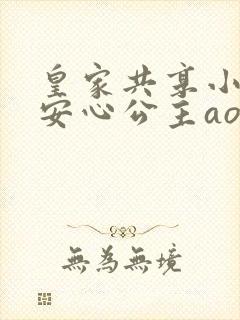 皇家共享小
安心公主ao
無為無境